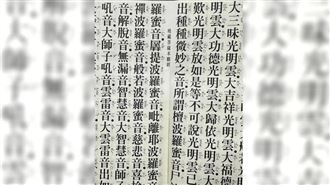 大三昧光明雲大吉祥光明雲大福德
明雲大功德光明雲大歸依光明雲大
歎光明雲放如是等不可說光明雲已
出種種微妙之音所謂檀波羅蜜音尸
地藏菩薩本願經
羅蜜音羼提波羅蜜音毗離耶波羅蜜音
禪波羅蜜音般若波羅蜜音慈悲音喜捨
音解脫音無漏音智慧音大智慧音師
吼音大師子吼音雲雷音大雲雷音出如